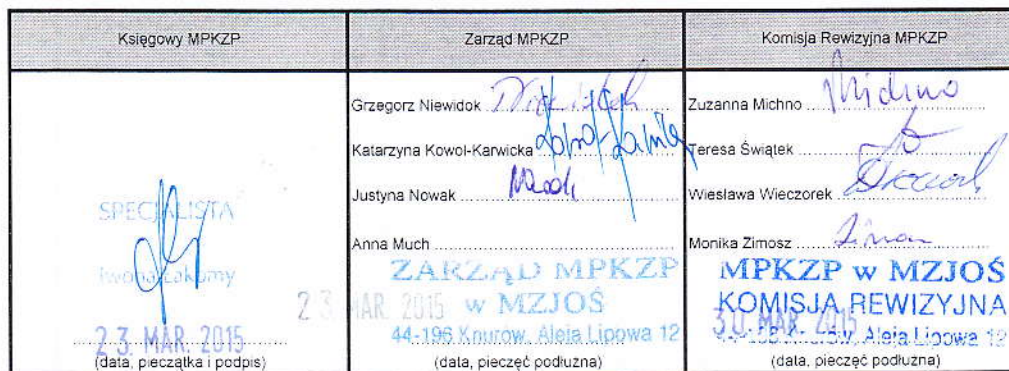 Księgowy MPKZP
Zarząd MPKZP
Komisja Rewizyjna MPKZP
SPECJALISTA
Iwona Łakomy
23. MAR. 2015
(data, pieczątka i podpis)
Grzegorz Niewidok
Katarzyna Kowol-Karwicka
Justyna Nowak
Anna Much
ZARZĄD MPKZP
w MZJOŚ
44-196 Knurów, Aleja Lipowa 12
23 MAR. 2015
(data, pieczęć podłużna)
Zuzanna Michno Michno
Teresa Świątek
Wiesława Wieczorek
Monika Zimosz
MPKZP w MZJOŚ
KOMISJA REWIZYJNA
44-196 Knurów, Aleja Lipowa 12
30. MAR. 2015
(data, pieczęć podłużna)